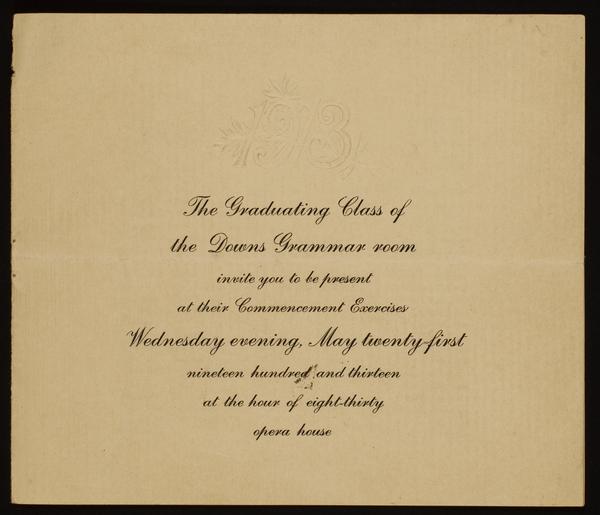 1913
The Graduating Class of
the Downs Grammar room
invite you to be present
at their Commencement Exercises
Wednesday evening, May twenty-first
nineteen hundred and thirteen
at the hour of eight-thirty
opera house